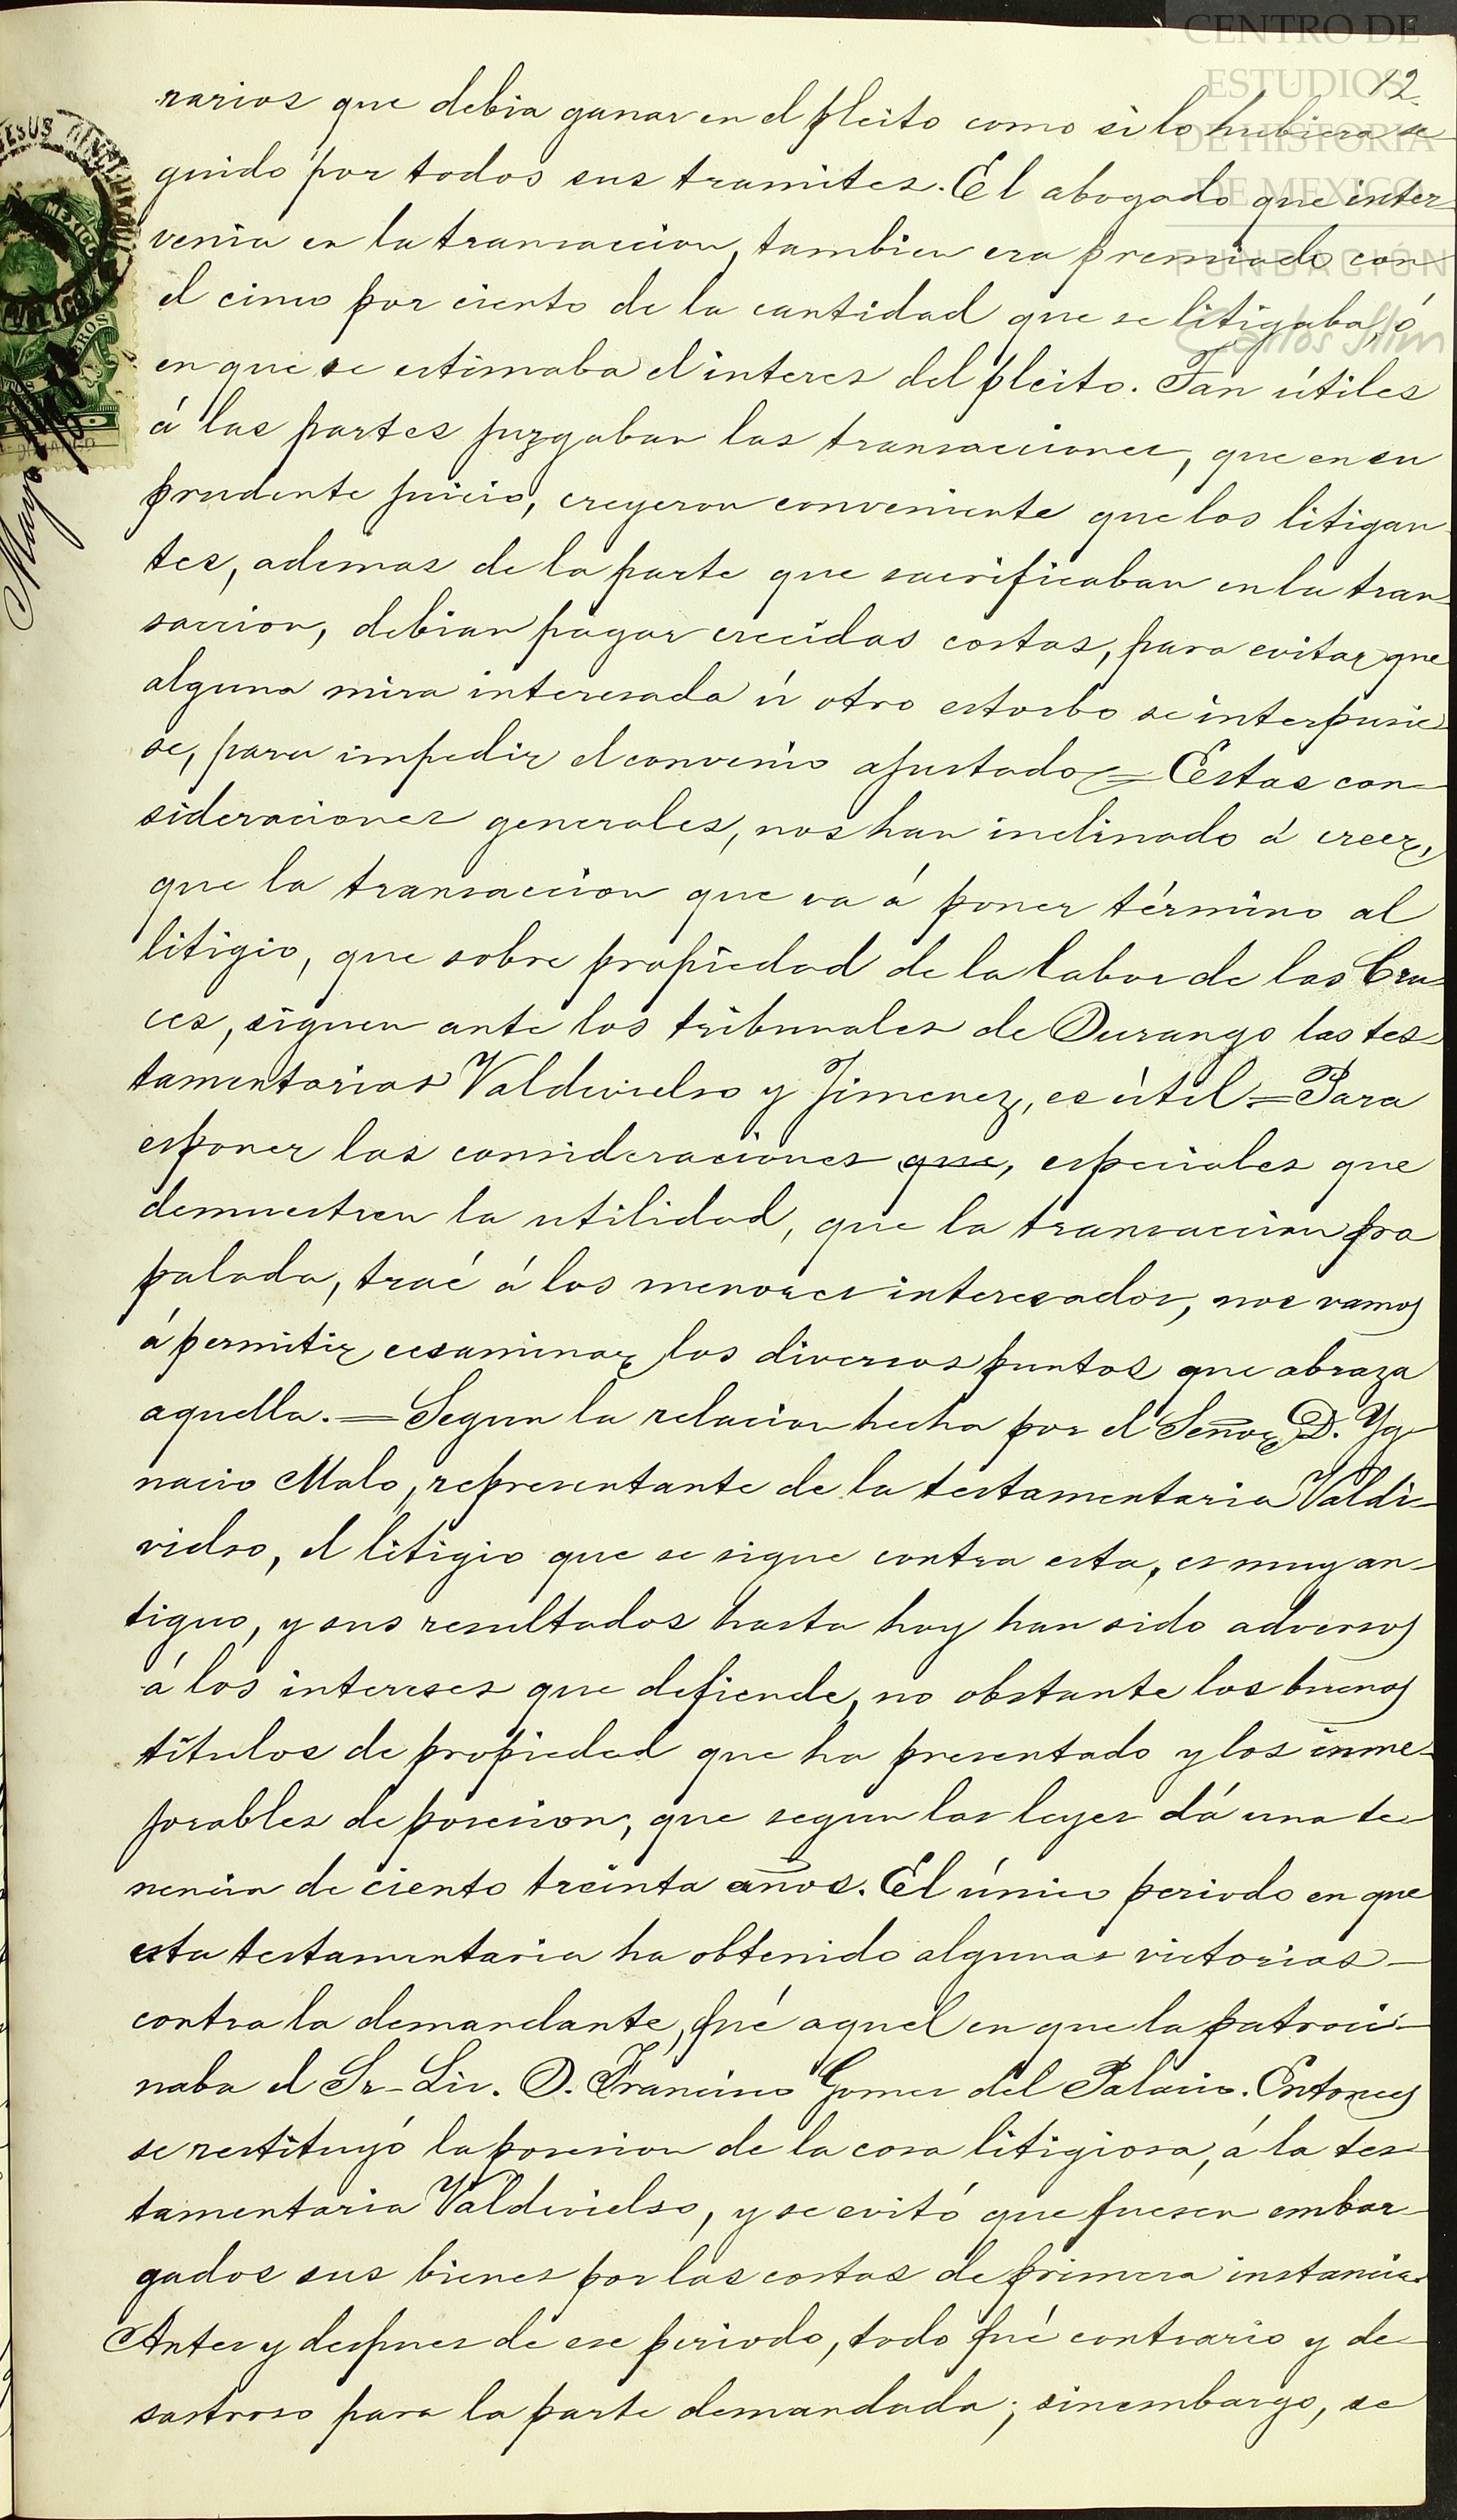 CENTRO DE
ESTUDIOS
DE HISTORIA
DE MEXICO
FUNDACIÓN
Carlos Slim
12
narios que debia ganar en el pleito como si lo hubiera se
guido por todos sus tramites. El abogado que inter-
venia en la transaccion, tambien era premiado con
el cinco por ciento de la cantidad que se litigaba, ó
en que se estimaba el interes del pleito. Tan útiles
á las partes juzgaban las transacciones, que en su
prudente juicio, creyeron conveniente que los litigan-
tes, ademas de la parte que sacrificaban en la tran-
saccion, debian pagar crecidas costas, para evitar que
alguna mira interesada ú otro estorbo se interpusie-
se, para impedir el convenio ajustado = Estas con-
sideraciones generales, nos han inclinado á creer,
que la transaccion que va á poner término al
litigio, que sobre propiedad de la labor de las Cru-
ces, siguen ante los tribunales de Durango las tes-
tamentarias Valdivielso y Jimenez, es útil = Para
esponer las consideraciones que, especiales que
demuestren la utilidad, que la transaccion pro
palada, traé á los menores interesados, nos vamos
á permitir ecsaminar los diversos puntos que abraza
aquella. = Segun la relacion hecha por el Señor D. Yg-
nacio Malo, representante de la testamentaria Valdi-
vielso, el litigio que se sigue contra esta, es muy an-
tiguo, y sus resultados hasta hoy han sido adversos
á los intereses que defiende, no obstante los buenos
títulos de propiedad que ha presentado y los inme-
jorables de posesion, que segun las leyes dá una te-
nencia de ciento treinta años. El único periodo en que
esta testamentaria ha obtenido algunas victorias-
contra la demandante, fué aquel en que la patroci-
naba el Sr- Lic. D. Francisco Gomez del Palacio. Entonces
se restituyó la posesion de la cosa litigiosa, á la tes-
tamentaria Valdivielso, y se evitó que fuesen embar-
gados sus bienes por las costas de primera instancia.
Antes y despues de ese periodo, todo fué contrario y de-
sastroso para la parte demandada; sinembargo, se
MEXICO
Mayo